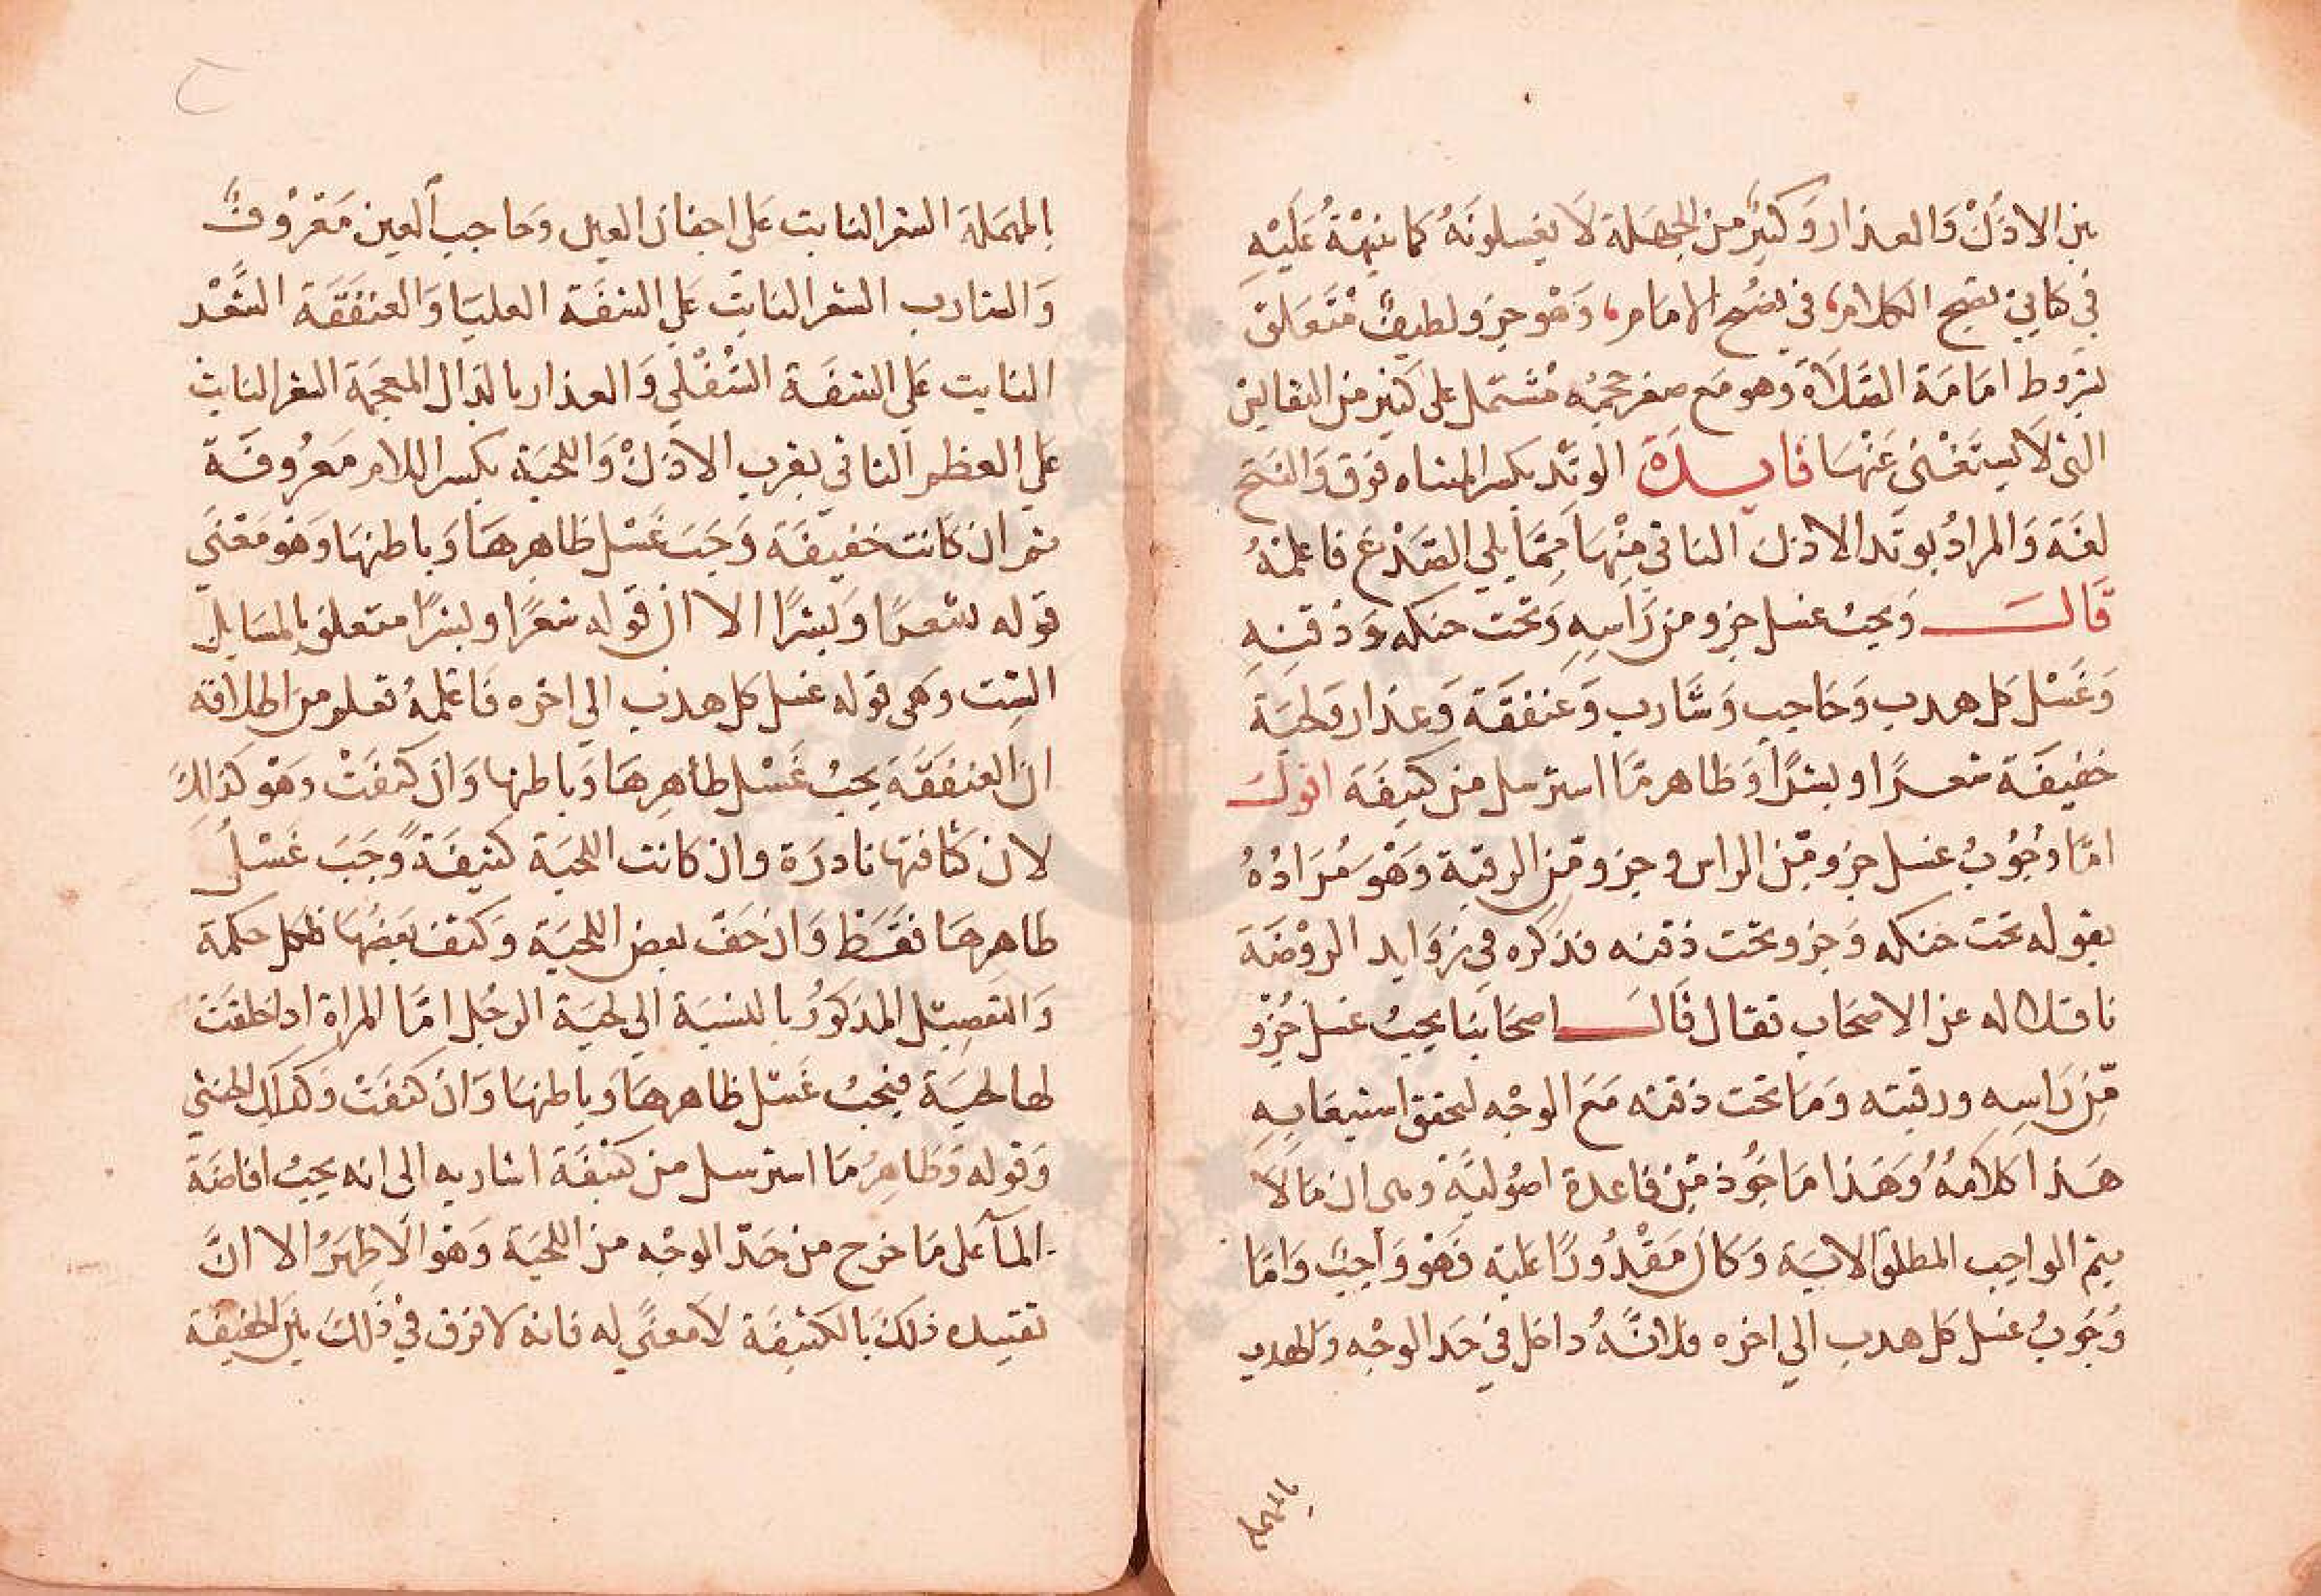 بين الاذن والعذار وكثير من الجهلة لا يغسلونه كما نبهة عليه
في كتابي نصح الكلام، في نصح الامام، وهو جزو لطيف متعلق
بشروط امامة الصلاة وهو مع صغر حجمه مشتمل على كثير من النفايس
التي لا يستغنى عنها فايدة الوتد بكسر المثناه فوق والفتح
لغة والمراد بوتد الاذن الناتي منها مما يلي الصدغ فاعلمه
قال ويجب غسل جزو من راسه وتحت حنكه وذقنه
وغسل كل هدب وحاجب وشارب وعنفقة وعذار ولحية
خفيفة شعرا وبشرا وظاهر ما استرسل من كثيفة اقول
اما وجوب غسل جزو من الراس وجزو من الرقبة وهو مراده
بقوله تحت حنكه وجزو تحت ذقنه فذكره في زوايد الروضة
ناقلا له عن الاصحاب فقال قال اصحابنا يجب غسل جزو
من راسه ورقبته وما تحت ذقنه مع الوجه لتحقق استيعابه
هذا كلامه وهذا ماخوذ من قاعدة اصولية وهى ان ما لا
يتم الواجب المطلق الا به وكان مقدورا عليه فهو واجب واما
وجوب غسل كل هدب الي اخره فلانه داخل في حد الوجه والهدب
بالمهملة
بالمهملة الشعر النابت على اجفان العين وحاجب العين معروف
والشارب الشعر النابت على الشفة العليا والعنفقة الشعر
النابت على الشفة السفلي والعذار بالذال المعجمة الشعر النابت
على العظم الناتي بقرب الاذن واللحية بكسر اللام معروفة
ثم ان كانت خفيفة وجب غسل ظاهرها وباطنها وهو معنى
قوله شعرا وبشرا الا ان قوله شعرا وبشرا متعلق بالمسايل
الست وهى قوله غسل كل هدب الي اخره فاعلمه تعلم من اطلاقه
ان العنفقة يجب غسل ظاهرها وباطنها وان كثفت وهو كذلك
لان كثافتها نادرة وان كانت اللحية كثيفة وجب غسل
ظاهرها فقط وان خف بعض اللحية وكثف بعضها فلكل حكمه
والتفصيل المذكور بالنسبة الي لحية الرجل اما المراة اذا خلقت
لها لحية فيجب غسل ظاهرها وباطنها وان كثفت وكذلك الخنثى
وقوله وظاهر ما استرسل من كثيفة اشار به الى انه يجب افاضة
المآ على ما خرج من حد الوجه من اللحية وهو الاظهر الا ان
تقييده ذلك بالكثيفة لا معنى له فانه لا فرق في ذلك بين الخفيفة